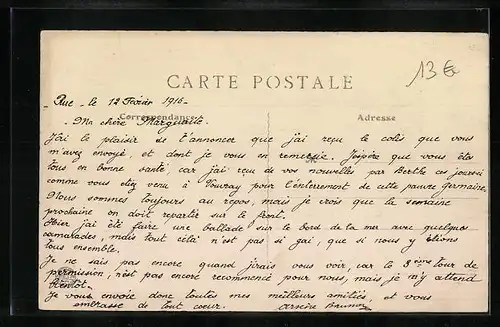 13€
CARTE POSTALE
Correspondance
Adresse
- Rue - le 12 Février 1916 -
- Ma chère Marguerite -
J'ai le plaisir de t'annoncer que j'ai reçu le colis que vous
m'avez envoyé, et dont je vous en remercie. J'espère que vous êtes
tous en bonne santé, car j'ai reçu de vos nouvelles par Berthe ces jours ci
comme vous étiez venu à pour l'enterrement de cette pauvre Germaine
Nous sommes toujours au repos, mais je crois que la semaine
prochaine on doit repartir sur le front.
Hier j'ai été faire une ballade sur le bord de la mer avec quelques
camarades, mais tout celà n'est pas si gai, que si nous y étions
tous ensemble.
Je ne sais pas encore quand j'irais vous voir, car le 3ème tour de
permission, n'est pas encore recommencé pour nous, mais je m'y attend
bientôt.
Je vous envoie donc toutes mes meilleurs amitiés, et vous
embrasse de tout coeur. Arsène